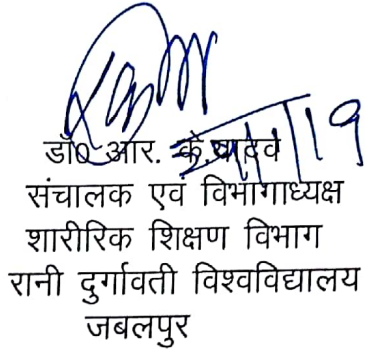 डॉ0 आर. के.यादव
संचालक एवं विभागाध्यक्ष
शारीरिक शिक्षण विभाग
रानी दुर्गावती विश्वविद्यालय
जबलपुर